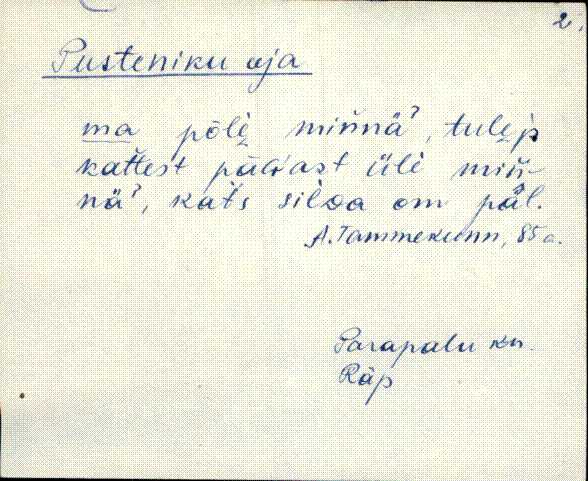 2.
Pusteniku oja
ma põlè mińnäˀ, tulep
kat́test páivast üĺè miń-
näˀ, kat́s silda om pääl.
A. Tammekunn, 85 a.
Parapalu kn.
Räp